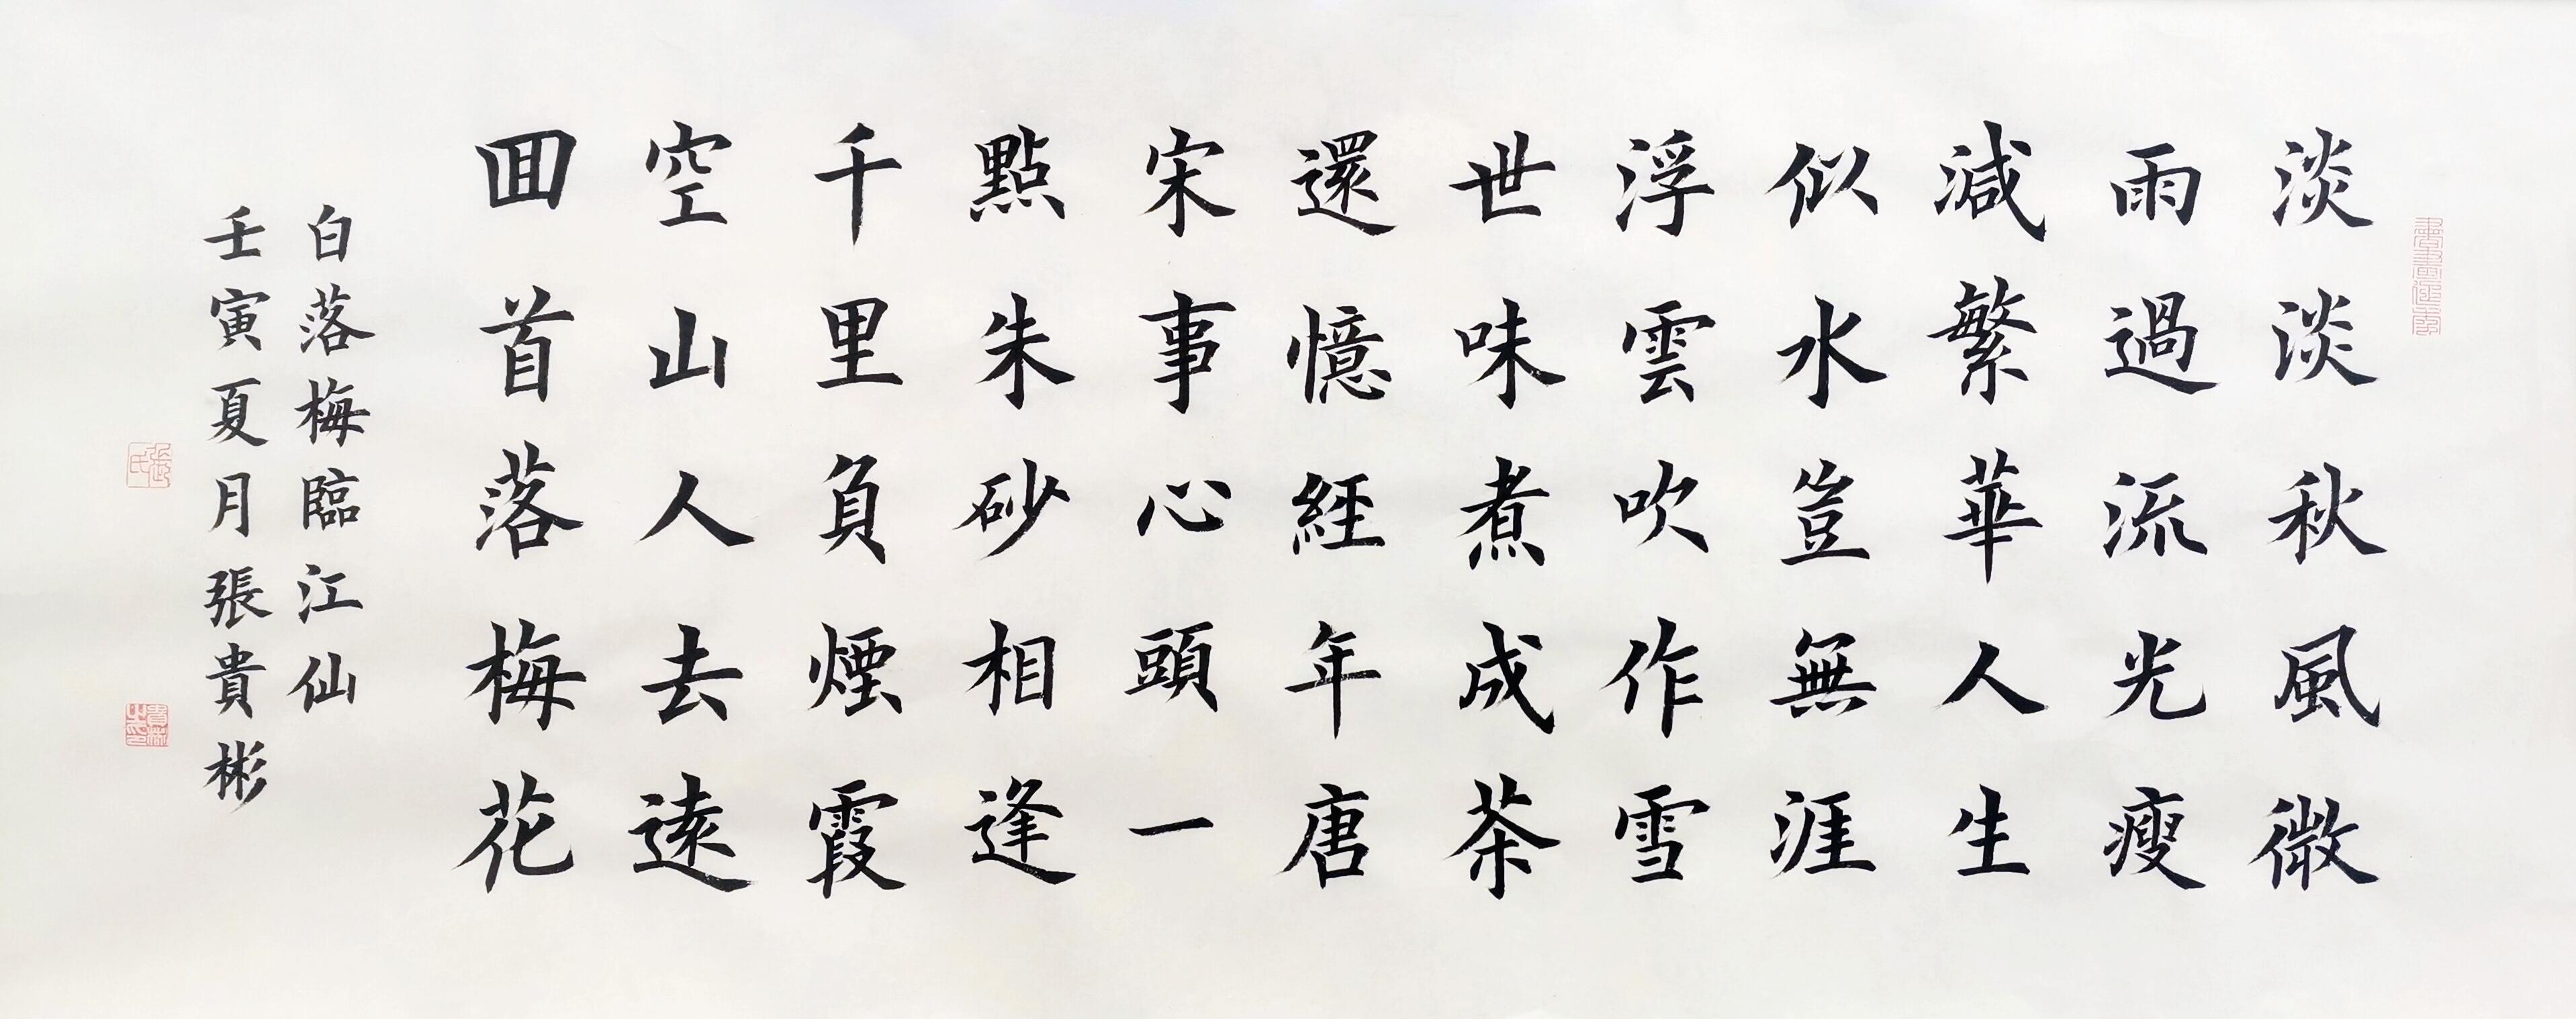 淡淡秋風微
雨過流光瘦
減繁華人生
似水豈無涯
浮雲吹作雪
世味煮成茶
還憶經年唐
宋事心頭一
點朱砂相逢
千里負煙霞
空山人去遠
回首落梅花
白落梅臨江仙
壬寅夏月張貴彬
張氏
貴彬之印